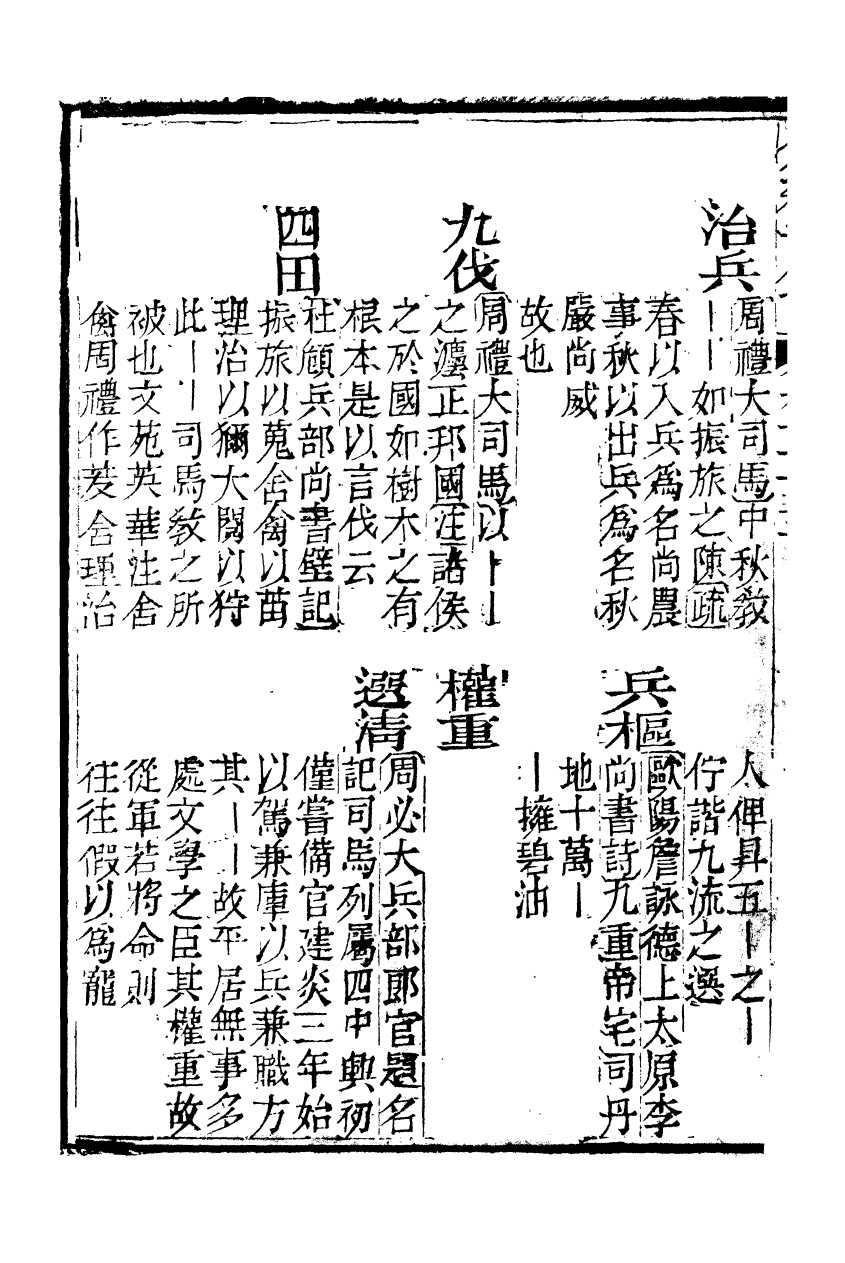 治兵
周禮大司馬中秋敎
丨丨如振旅之陳疏
春以入兵爲名尚農
事秋以出兵爲名秋
嚴尚威
故也
九伐
周禮大司馬以丨丨
之灋正邦國注諸侯
之於國如樹木之有
根本是以言伐云
四田
杜頠兵部尚書壁記
振旅以蒐舍禽以苗
理治以獮大閱以狩
此丨丨司馬敎之所
被也文苑英華注舍
禽周禮作茇舍理治
人俾昇五丨之丨
佇諧九流之選
兵樞
歐陽詹詠德上太原李
尚書詩九重帝宅司丹
地十萬丨
丨擁碧油
權重
選清
周必大兵部郎官題名
記司馬列屬四中興初
僅嘗備官建炎三年始
以駕兼庫以兵兼職方
其丨丨故平居無事多
處文學之臣其權重故
從軍若將命則
往往假以爲寵